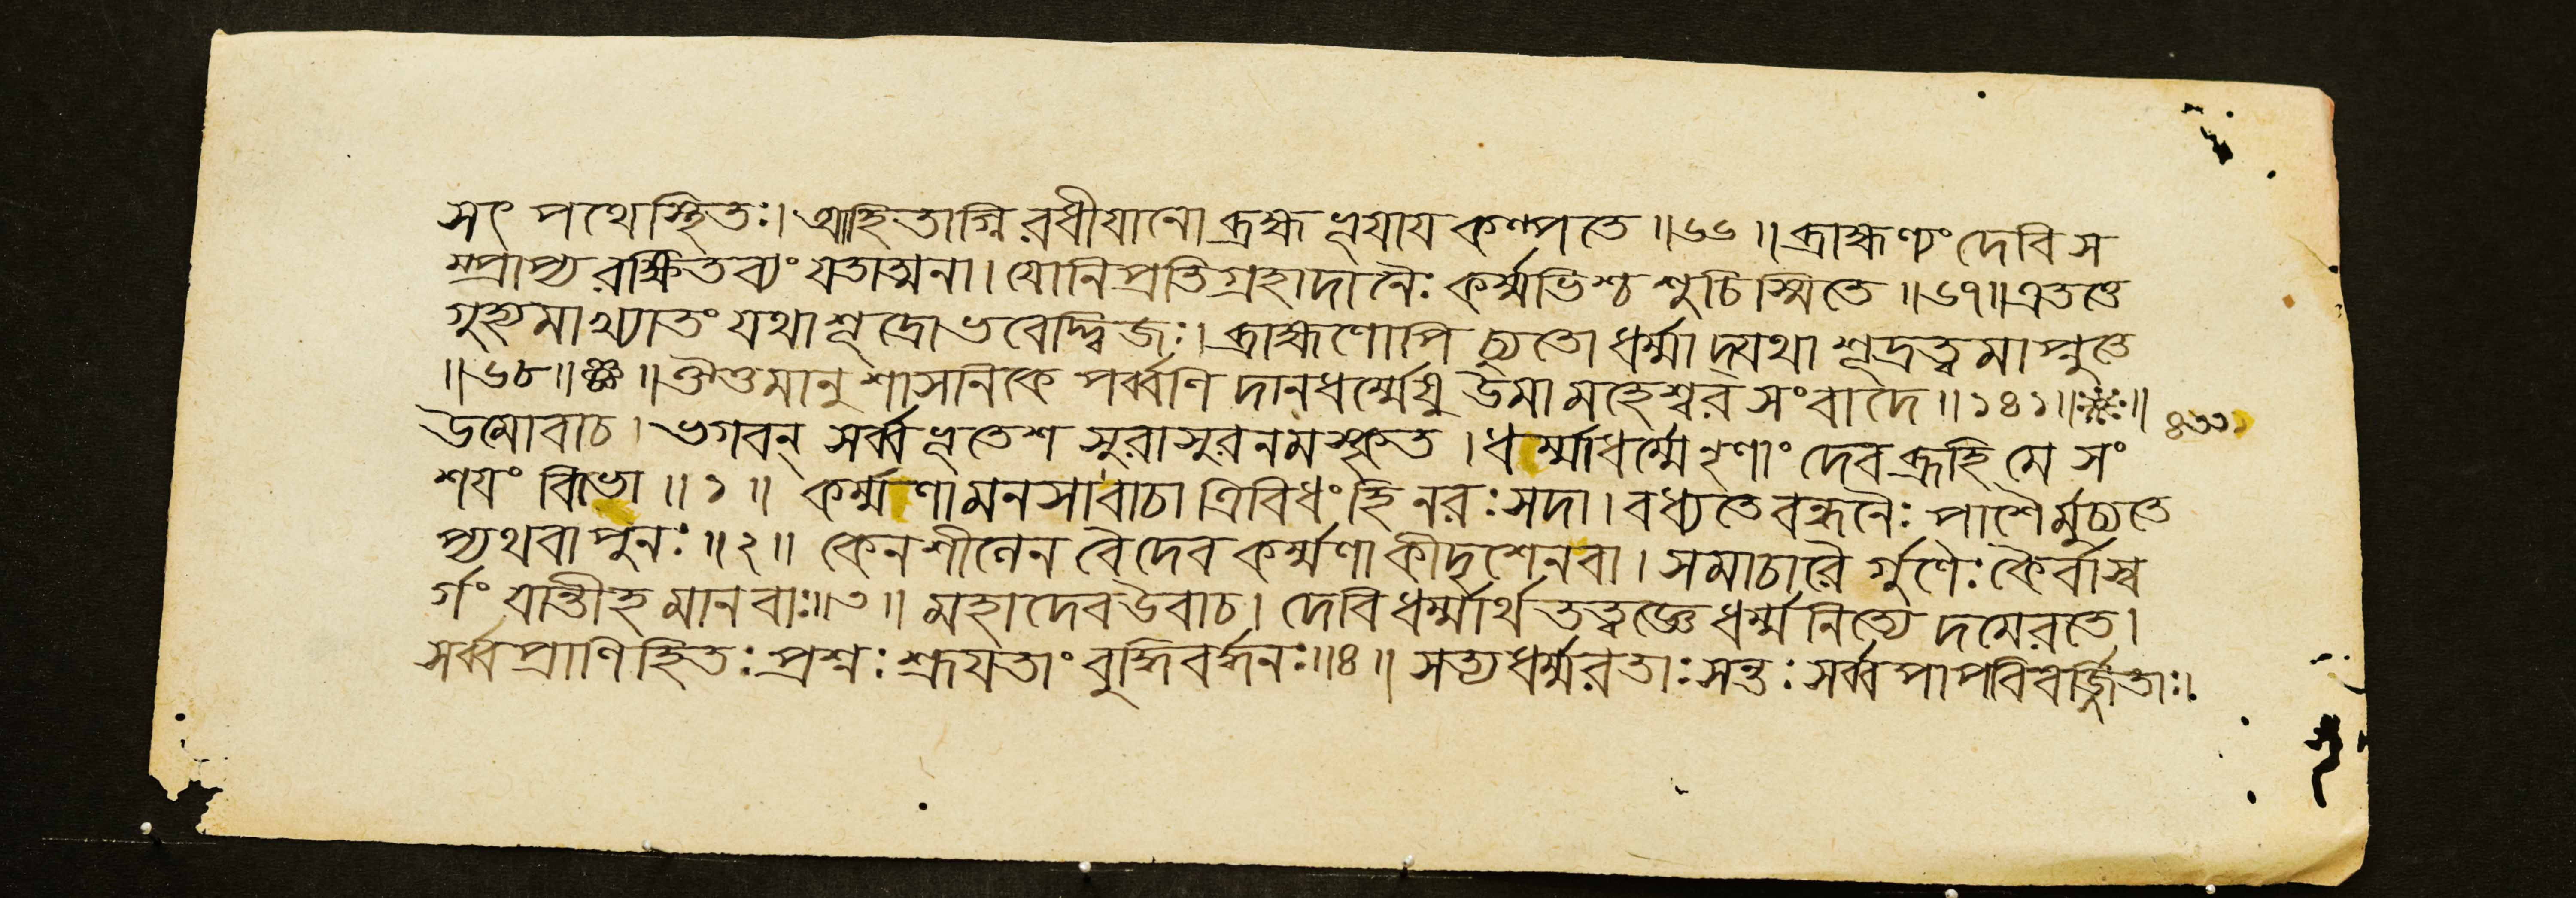 সৎ পথেস্থিতঃ। আহিতাগ্নিরধীযানো ব্রহ্মভূযায কল্পতে ॥৬৬॥ ব্রাহ্মণ্যং দেবি স
ম্প্রাপ্য রক্ষিতব্যং যতাত্মনা। যোনিপ্রতিগ্রহাদানৈঃ কর্ম্মভিশ্চ শুচিস্মিতে ॥৬৭॥ এতত্তে
গুহ্যমাখ্যাতং যথা শূদ্রো ভবেদ্দ্বিজঃ। ব্রাহ্মণোপি চ্যুতো ধর্ম্মাদ্যথা শূদ্রত্বমাপ্নুতে
॥৬৮॥ ॥ ঔশুমানুশাসনিকে পর্ব্বণি দানধর্ম্মেষু উমামহেশ্বর সংবাদে ॥১৪১॥
উমোবাচ। ভগবন্ সর্ব্বভূতেশ সুরাসুরনমস্কৃত। ধর্ম্মাধর্ম্মে নৃণাং দেব ব্রূহি মে সং
শযং বিভো ॥১॥ কর্ম্মণা মনসা বাচা ত্রিবিধং হি নরঃ সদা। বধ্যতে বন্ধনৈঃ পাশৈর্মুচ্যতে
প্যথবা পুনঃ ॥২॥ কেন শীলেন বৈ দেব কর্ম্মণা কীদৃশেন বা। সমাচারৈর্গুণৈঃ কৈর্বা স্ব
র্গং যান্তীহ মানবাঃ ॥৩॥ মহাদেব উবাচ। দেবি ধর্ম্মার্থতত্ত্বজ্ঞে ধর্ম্মনিত্যে দমেরতে।
সর্ব্বপ্রাণিহিতঃ প্রশ্নঃ শ্রূযতাং বুদ্ধিবর্দ্ধনঃ ॥৪॥ সত্যধর্ম্মরতাঃ সন্তঃ সর্ব্বপাপবিবর্জ্জিতাঃ।